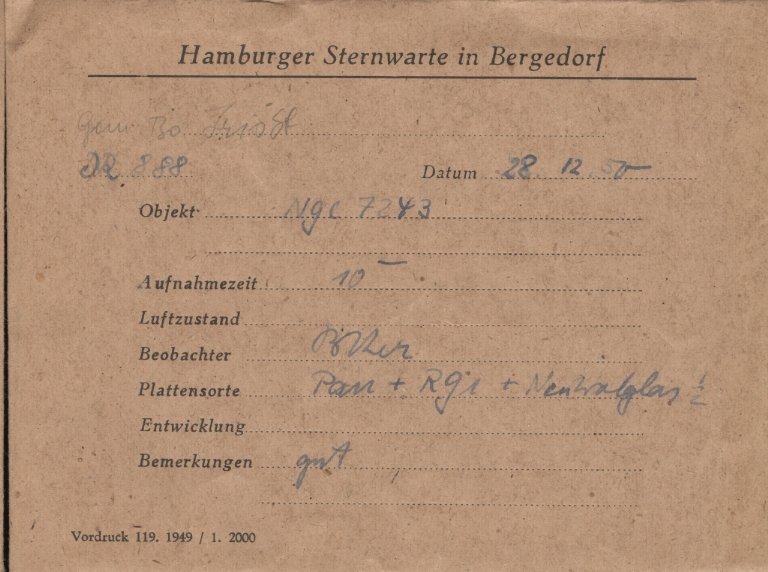 Hamburger Sternwarte in Bergedorf
gem Bo
888 Datum 28. 12. 50
Objekt Ngc 7243
Aufnahmezeit 10
Luftzustand
Beobachter
Plattensorte Pan + RG1 + Neutralglas ½
Entwicklung
Bemerkungen gut
Vordruck 119. 1949 / 1. 2000